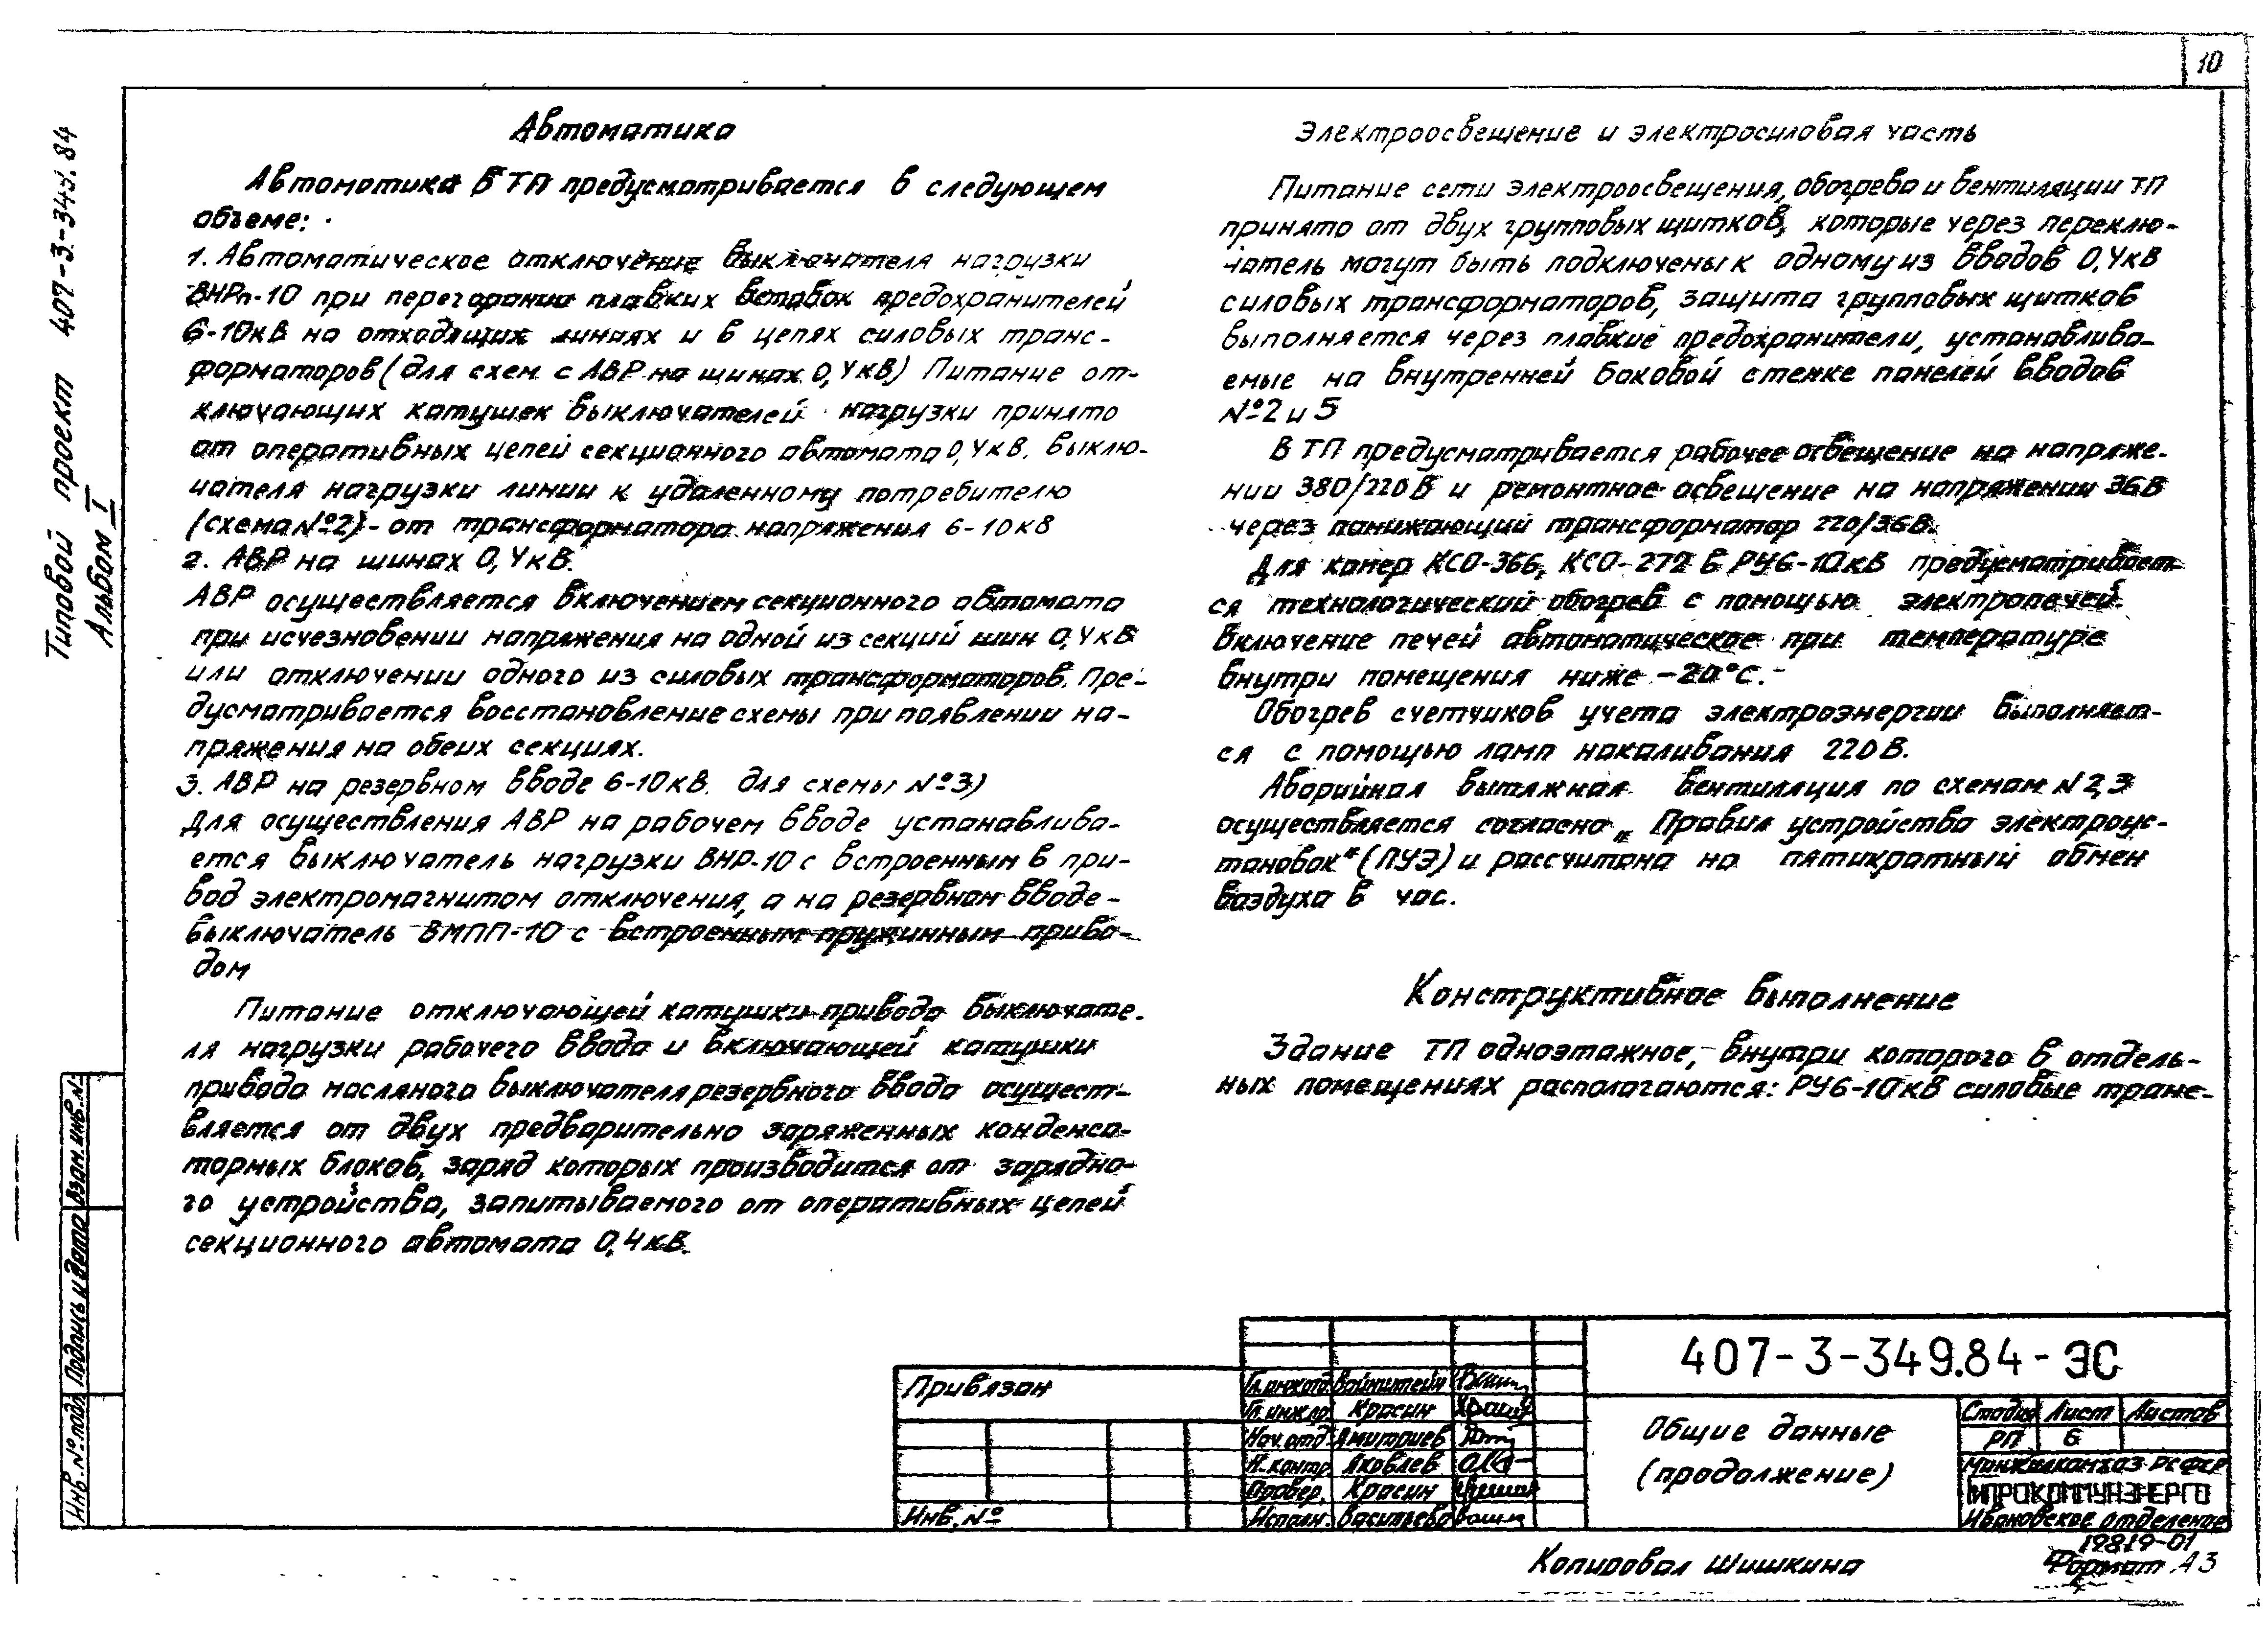 10
Типовой проект 407-3-349.84
Альбом I
Автоматика
Автоматика в ТП предусматривается в следующем
объеме:
1. Автоматическое отключение выключателя нагрузки
ВНРп-10 при перегорании плавких вставок предохранителей
6-10кВ на отходящих линиях и в цепях силовых транс-
форматоров (для схем с АВР на шинах 0,4кВ) Питание от-
ключающих катушек выключателей нагрузки принято
от оперативных цепей секционного автомата 0,4кВ. выклю-
чателя нагрузки линии к удаленному потребителю
(схема №2)- от трансформатора напряжения 6-10кВ
2. АВР на шинах 0,4кВ.
АВР осуществляется включением секционного автомата
при исчезновении напряжения на одной из секций шин 0,4кВ
или отключении одного из силовых трансформаторов. Пре-
дусматривается восстановление схемы при появлении на-
пряжения на обеих секциях.
3. АВР на резервном вводе 6-10кВ. для схемы №3)
Для осуществления АВР на рабочем вводе устанавлива-
ется выключатель нагрузки ВНР-10 с встроенным в при-
вод электромагнитом отключения, а на резервном вводе-
выключатель ВМПП-10 с встроенным пружинным приво-
дом
Питание отключающей катушки привода выключате-
ля нагрузки рабочего ввода и включающей катушки
привода масляного выключателя резервного ввода осущест-
вляется от двух предварительно заряженных конденса-
торных блоков, заряд которых производится от зарядно-
го устройства, запитываемого от оперативных цепей
секционного автомата 0,4кВ.
Электроосвещение и электросиловая часть
Питание сети электроосвещения, обогрева и вентиляции ТП
принято от двух групповых щитков, которые через переклю-
чатель могут быть подключены к одному из вводов 0,4кВ
силовых трансформаторов, защита групповых щитков
выполняется через плавкие предохранители, устанавлива-
емые на внутренней боковой стенке панелей вводов
№2 и 5
В ТП предусматривается рабочее освещение на напряже-
нии 380/220В и ремонтное освещение на напряжении 36В
через понижающий трансформатор 220/36В.
Для камер КСО-366, КСО-272 в РУ6-10кВ предусматривает-
ся технологический обогрев с помощью электропечей.
Включение печей автоматическое при температуре
внутри помещения ниже -20°С.
Обогрев счетчиков учета электроэнергии выполняет-
ся с помощью ламп накаливания 220В.
Аварийная вытяжная вентиляция по схемам N 2,3
осуществляется согласно „Правил устройства электроус-
тановок" (ПУЭ) и рассчитана на пятикратный обмен
воздуха в час.
Конструктивное выполнение
Здание ТП одноэтажное, внутри которого в отдель-
ных помещениях располагаются: РУ6-10кВ силовые транс-
Взам.инв.№
Подпись и дата
Инв.№ подл.
Привязан
Инв. №
Гл.инж.отд. Вайнштейн
Гл.инж.пр. Красин
Нач.отд. Дмитриев
Н.контр. Яковлев
Провер. Красин
Исполн. Васильева
407-3-349.84-ЭС
Общие данные
(продолжение)
Стадия Лист Листов
РП 6
Минжилкомхоз РСФСР
ГИПРОКОММУНЭНЕРГО
Ивановское отделение
19819-01
Копировал Шишкина
Формат А3